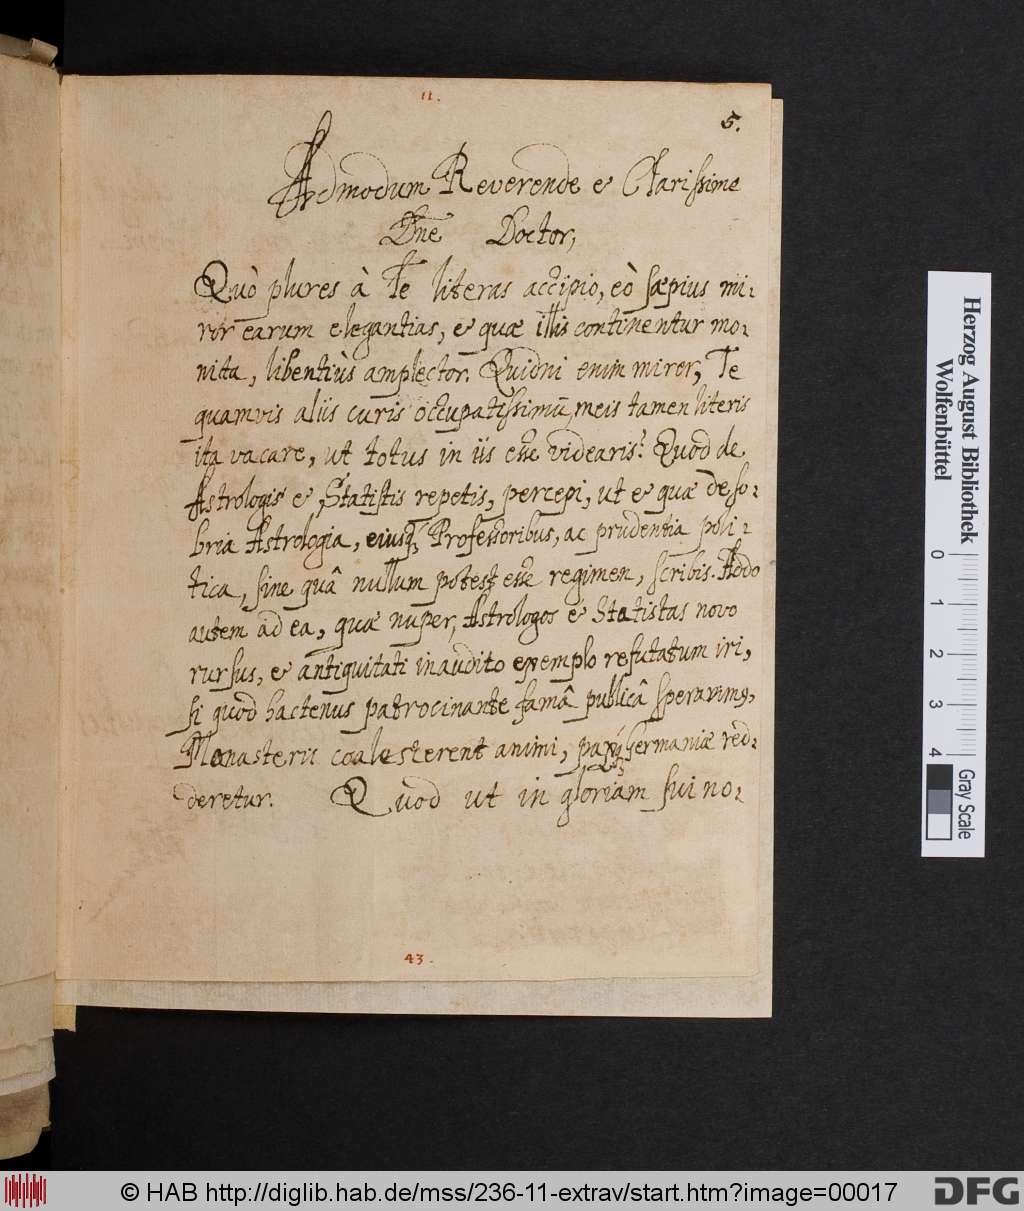 11.
5.
Admodum Reverende et Clarissime
Dne Doctor,
Quò plures à Te literas accipio, eò sæpius mi-
ror earum elegantias, et quæ illis continentur mo-
nita, libentiùs amplector. Quidni enim mirer, Te
quamvis aliis curis occupatissimũ, meis tamen literis
ita vacare, ut totus in iis esse videaris? Quod de
Astrologis et Statistis repetis, percepi, ut et quæ de so-
bria Astrologia, eiusq́, Professoribus, ac prudentia poli-
tica, sine quâ nullum potest esse regimen, scribis. Addo
autem ad ea, quæ nuper, Astrologos et Statistas novo
rursus, et antiquitati inaudito exemplo refutatum iri,
si quod hactenus patrocinante famâ publicâ speravimꝰ,
Monasterii coalescerent animi, paxq́ Germaniæ red-
deretur. Quod ut in gloriam sui no-
43.
Herzog August Bibliothek
Wolfenbüttel
0 1 2 3 4
Gray Scale
© HAB http://diglib.hab.de/mss/236-11-extrav/start.htm?image=00017
DFG